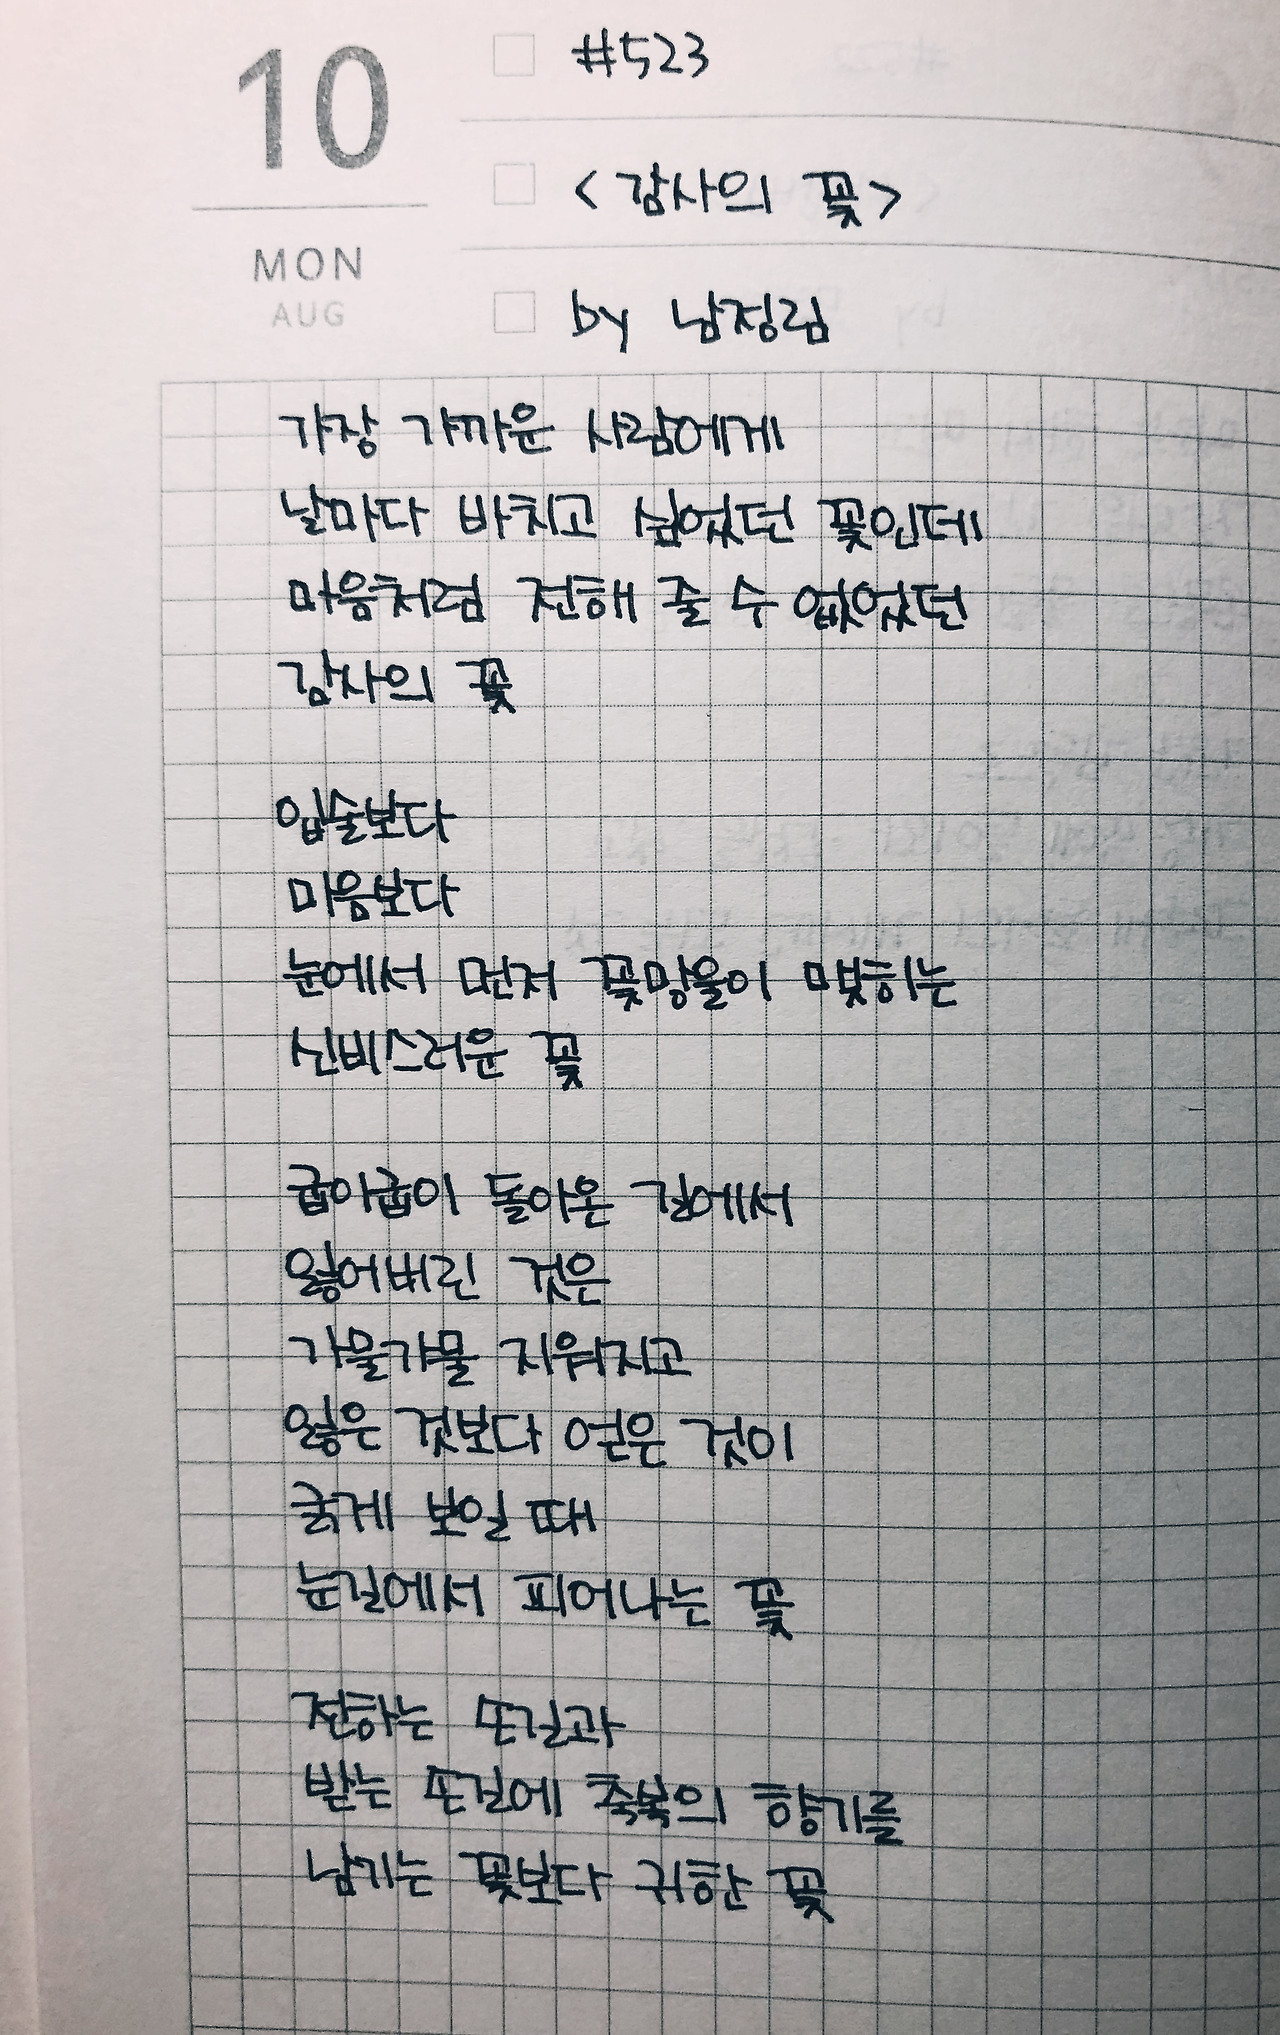 10
MON
AUG
#523
<감사의 꽃>
by 남정림
가장 가까운 사람에게
날마다 바치고 싶었던 꽃인데
마음처럼 전해 줄 수 없었던
감사의 꽃
입술보다
마음보다
눈에서 먼저 꽃망울이 맺히는
신비스러운 꽃
굽이굽이 돌아온 길에서
잃어버린 것은
가물가물 지워지고
잃은 것보다 얻은 것이
굵게 보일 때
눈길에서 피어나는 꽃
전하는 손길과
받는 손길에 축복의 향기를
남기는 꽃보다 귀한 꽃